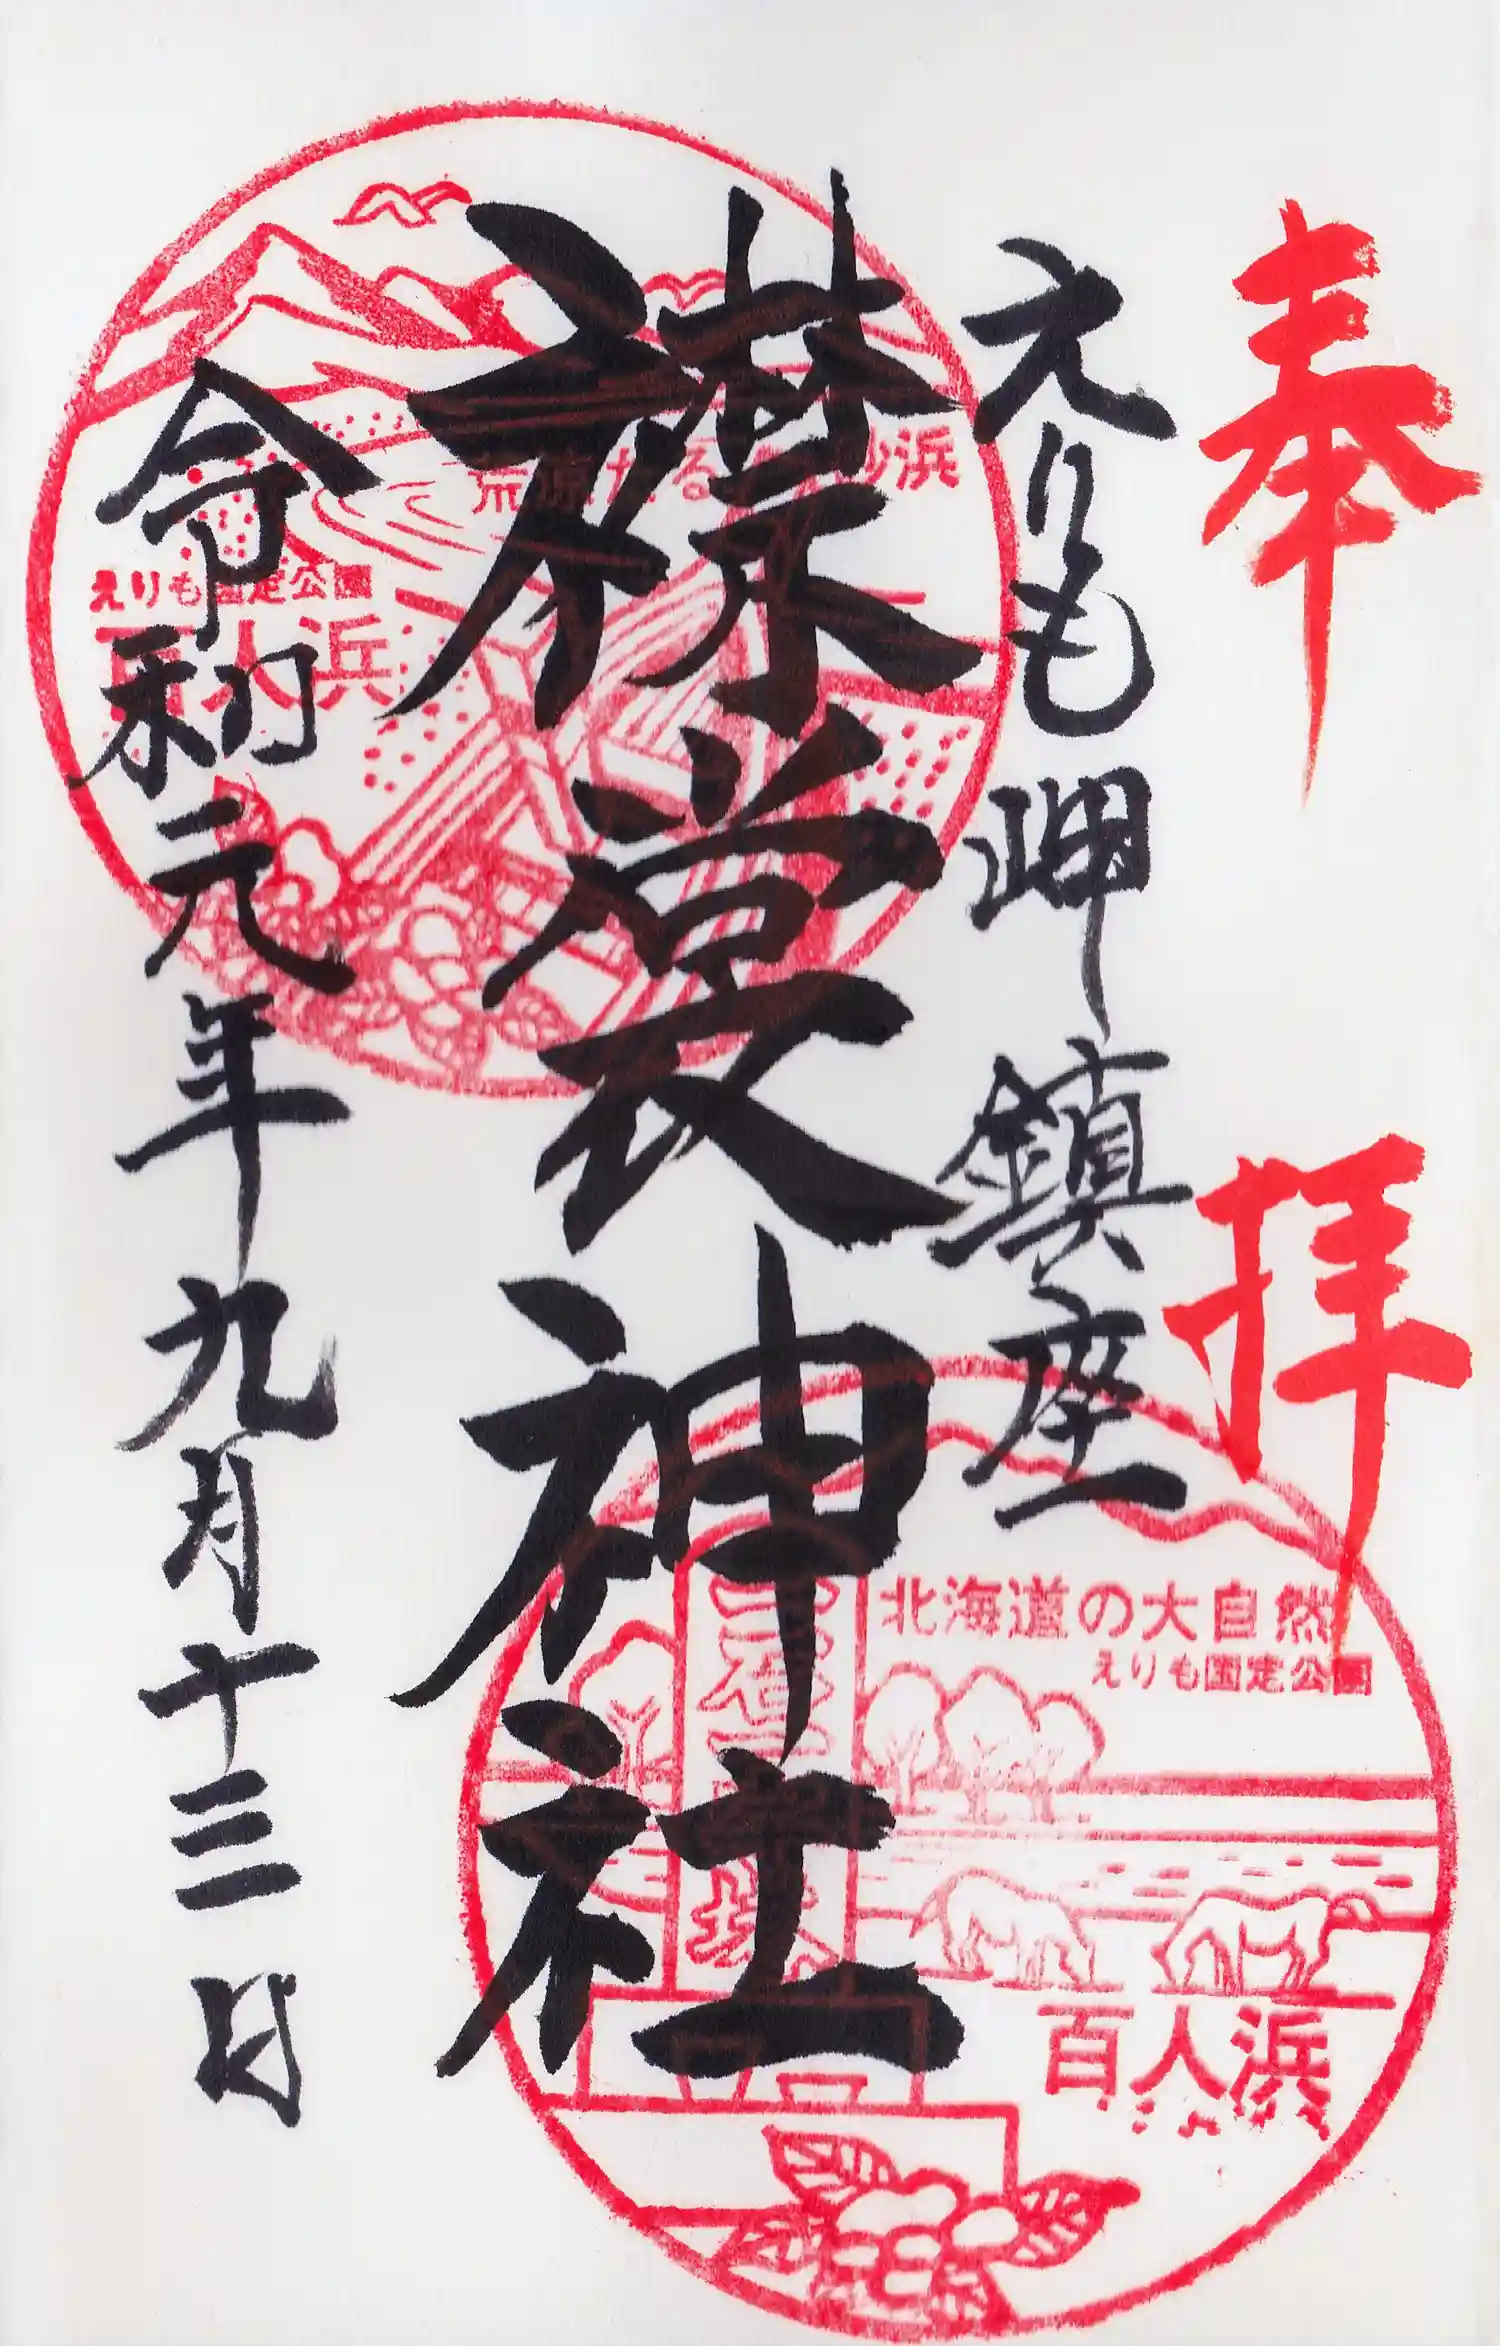 奉拝
えりも岬鎮座
襟裳神社
令和元年九月十三日
荒原たる
砂浜
えりも国定公園
百人浜
北海道の大自然
えりも国定公園
百人浜